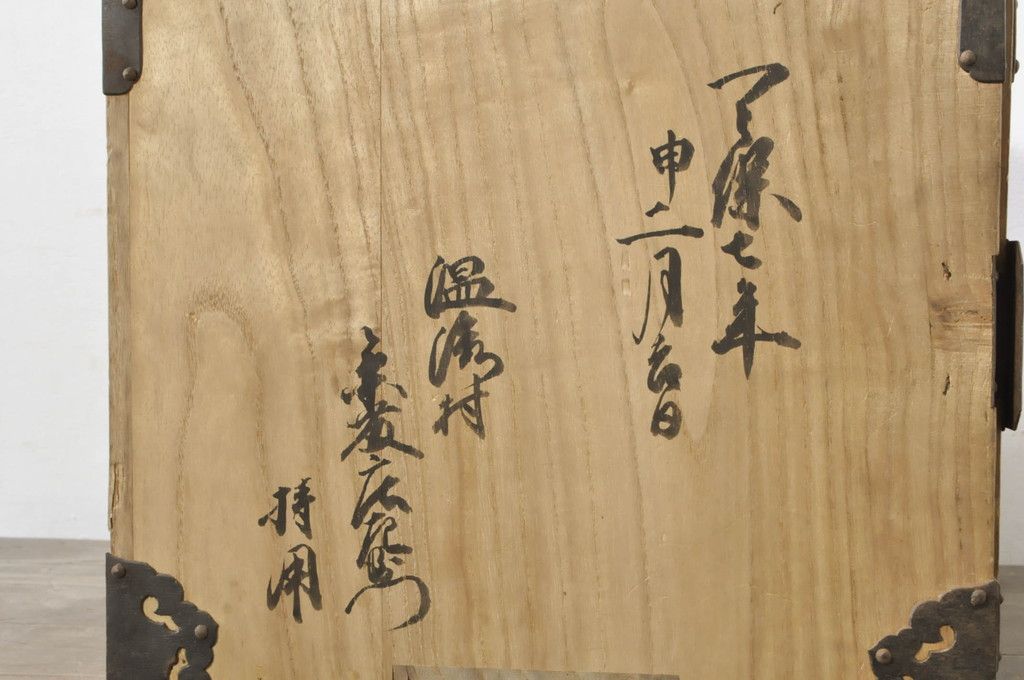 天保七年
申二月吉日
温海村
持用